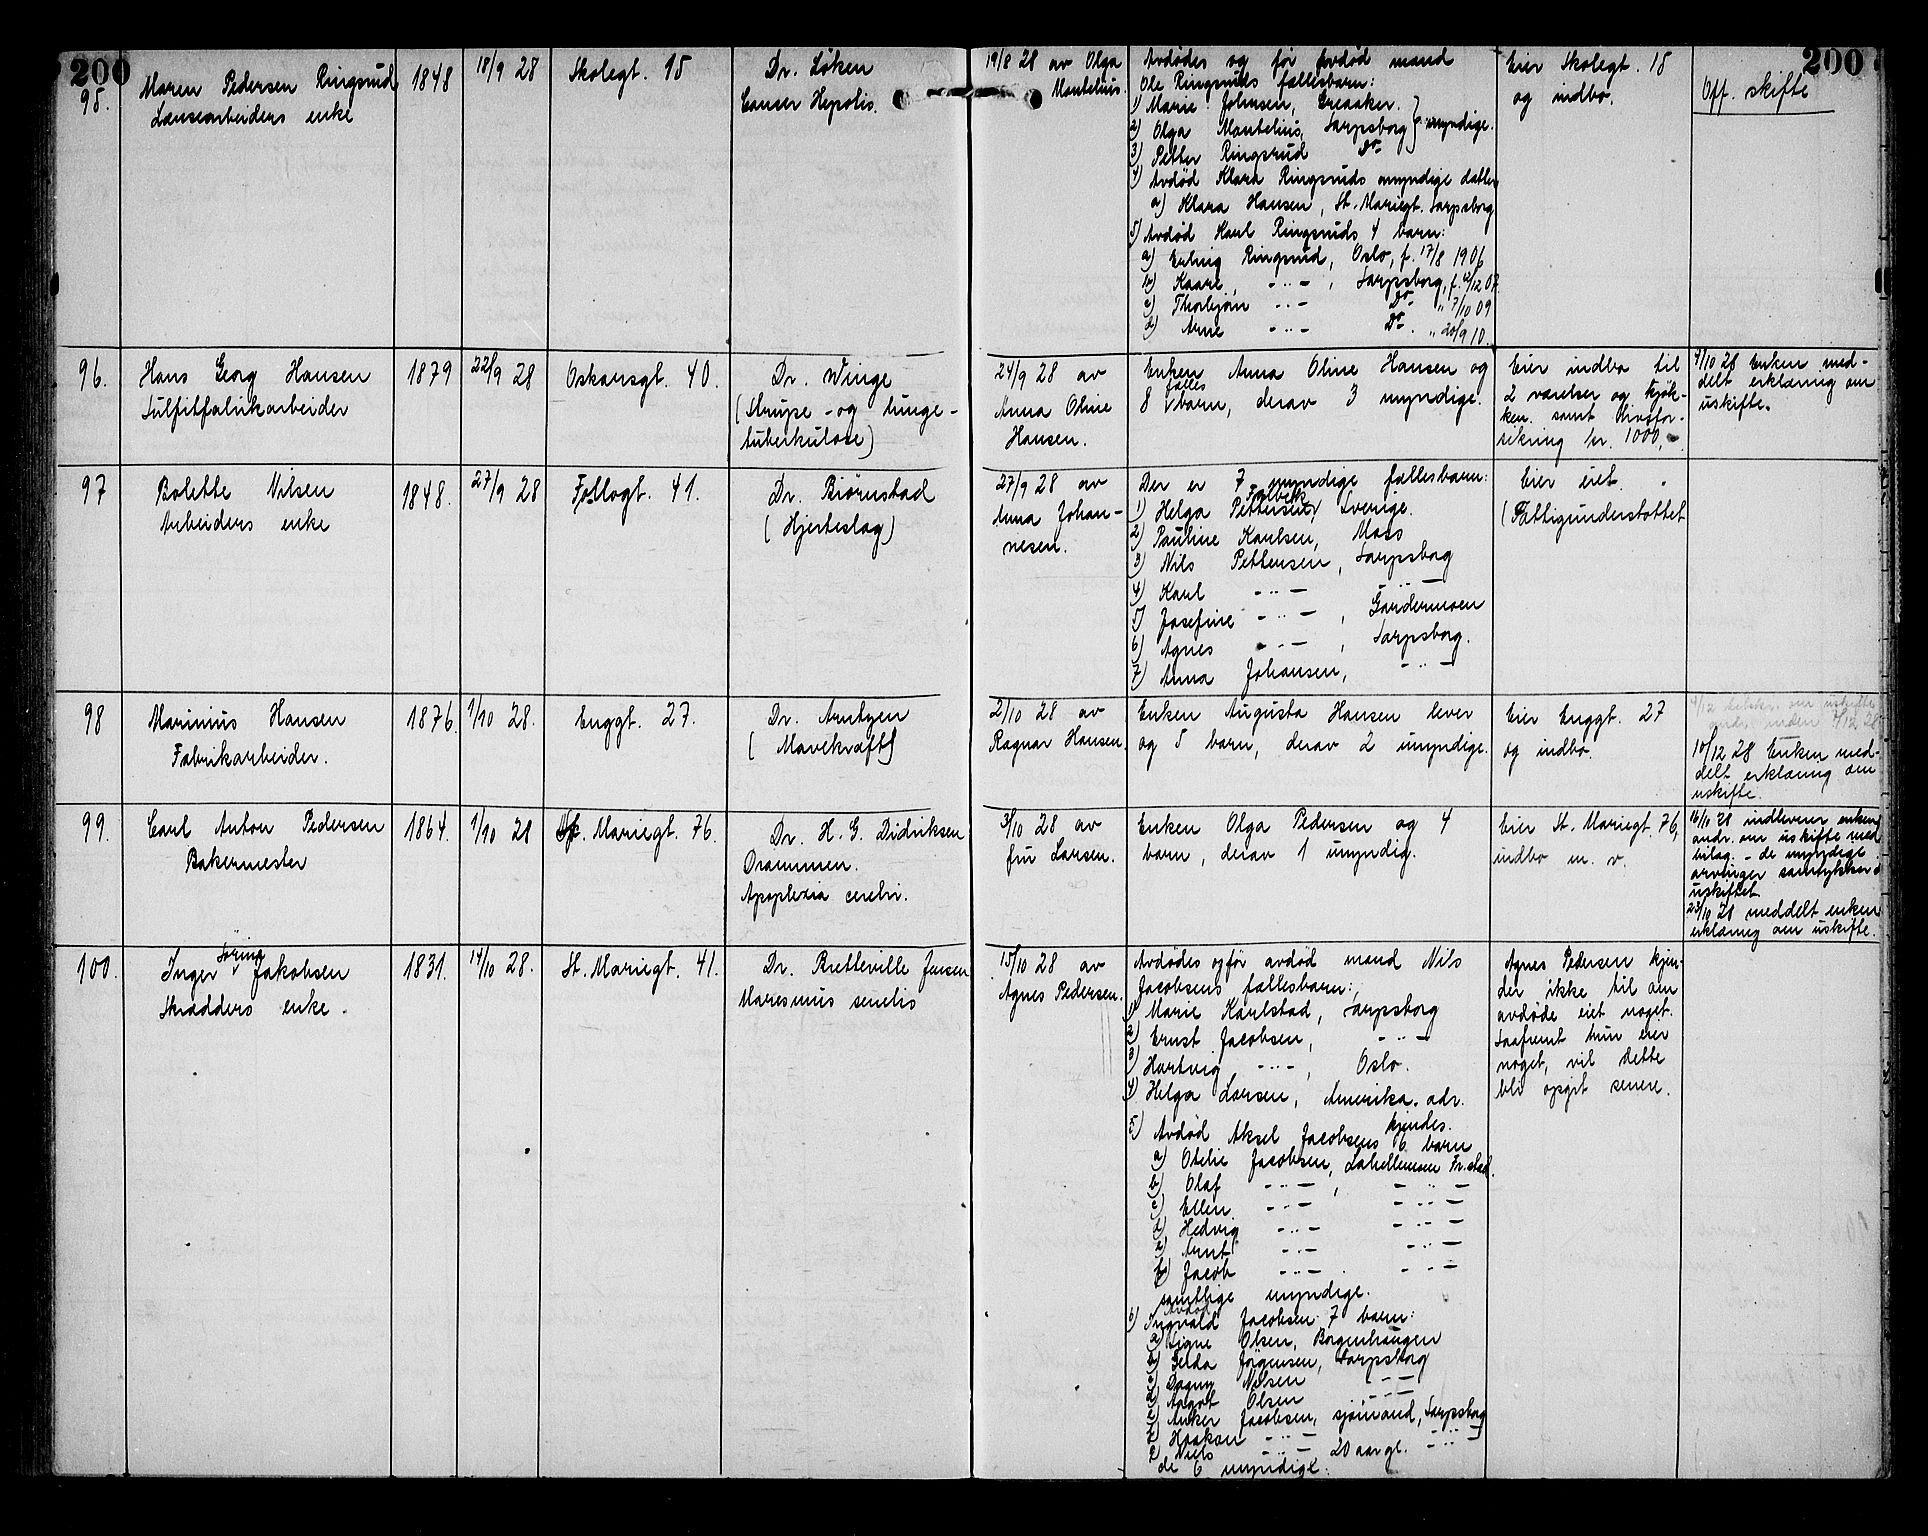 200
200
95.
Maren Pedersen Ringsrud
Lensearbeiders enke
1848
18/9 28
Skolegt. 15
Dr. Löken
Cancer Hepatis.
19/8 28 av Olga
Montelius.
Avdödes og för avdöd mand
Ole Ringsruds fællesbarn:
1) Marie Johnsen, Greaaker.
2) Olga Montelius, Sarpsborg } myndige.
3) Petter Ringsrud Do
4) Avdöd Klara Ringsruds myndige datter
a) Klara Hansen, St. Mariegt. Sarpsborg
5) Avdöd Karl Ringsruds 4 barn:
a) Erling Ringsrud, Oslo, f. 17/8 1906
b) Kaare, -"-, Sarpsborg, f. /12 07
c) Thorbjörn -"- Do " 7/10 09
d) Arne -"- Do. " 20/9 10.
Eier Skolegt. 15
og indbo.
Off. skifte
96.
Hans Georg Hansen
Sulfitfabrikarbeider
1879
22/9 28
Oskarsgt. 40.
Dr. Winge
(Strupe- og lunge-
tuberkulose)
24/9 28 av
Anna Oline
Hansen.
Enken Anna Oline Hansen og
8 fælles barn, derav 3 myndige.
Eier indbo til
2 værelser og kjök-
ken samt livsfor-
sikring kr. 1000,-
4/10 28 Enken med-
delt erklæring om
uskifte.
97
Bolette Nilsen
Arbeiders enke
1848.
27/9 28
Follogt. 41.
Dr. Björnstad
(Hjerteslag)
27/9 28 av
Anna Johan-
nesen.
Der er 7 myndige fællesbarn:
1) Helga Pettersen, Sverige.
2) Pauline Karlsen, Moss
3) Nils Pettersen, Sarpsborg
4) Karl -"- -"-
5) Josefine -"-, Gardermoen
6) Agnes -"-, Sarpsborg.
7) Anna Johansen, -"-
Eier iiet.
(Fattigunderstöttet
98
Marinius Hansen
Fabrikarbeider.
1876
1/10 28.
Enggt. 27.
Dr. Arntzen
(Mavekræft)
2/10 28 av
Ragnar Hansen.
Enken Augusta Hansen lever
og 5 barn, derav 2 umyndige.
Eier Enggt. 27
og indbo.
10/12 28 Enken med-
delt erklæring om
uskifte.
99.
Carl Anton Pedersen
Bakermester
1864.
1/10 28
St. Mariegt. 76.
Dr. H. G. Didriksen
Drammen.
Apoplexia cerebri.
3/10 28 av
fru Larsen.
Enken Olga Pedersen og 4
barn, derav 1 umyndig.
Eier St. Mariegt. 76,
indbo m. v.
16/10 28 indleverer enken
andr. om uskifte med
bilag. - de myndige
arvinger samtykker i
uskiftet
23/10 28 meddelt enken
erklæring om uskifte.
100.
Inger Sörine Jakobsen
Skrædders enke.
1831.
14/10 28.
St. Mariegt. 41.
Dr. Bretteville Jensen
Maresmus senelis
15/10 28 av
Agnes Pedersen.
Avdödes og för avdöd mand Nils
Jacobsens fællesbarn:
1) Marie Karlstad, Sarpsborg
2) Ernst Jacobsen, -"-
3) Hartvig -"-, Oslo.
4) Helga Larsen, Amerika. adr.
kjendes.
5) Avdöd Aksel Jacobsens 6 barn
a) Otelie Jacobsen, Labellemoen Fr.stad.
b) Olaf -"-, -"-
c) Ellen -"- -"-
d) Hedvig -"- -"-
e) Arnt -"- -"-
f) Jacob -"- -"-
samtlige umyndige.
6) Avdöd
Ingvald Jacobsen 7 barn:
a) Signe Olsen, Borgenhaugen
b) Gelda Jörgensen, Sarpsborg
c) Dagny Nilsen -"-
d) Aagot Olsen -"-
e) Anker Jacobsen, sjömand, Sarpsborg
f) Haakon -"- -"-
g) Niels -"- 20 aar gl. -"-
de 6 myndige.
Agnes Pedersen kjen-
der ikke til om
avdöde eiet noget.
Saafremt hun eier
noget, vil dette
bli opgit senere.